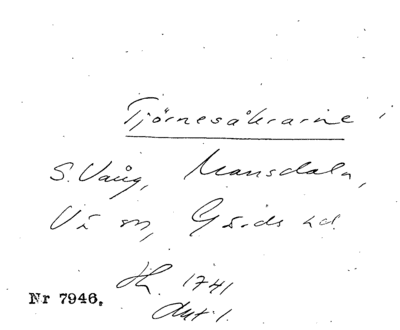 Tjörnesåkrarne
S. Vång, Mansdala,
V:a sn, Gärds hd.
Hl. 1741
Akt 1.
Nr 7946.